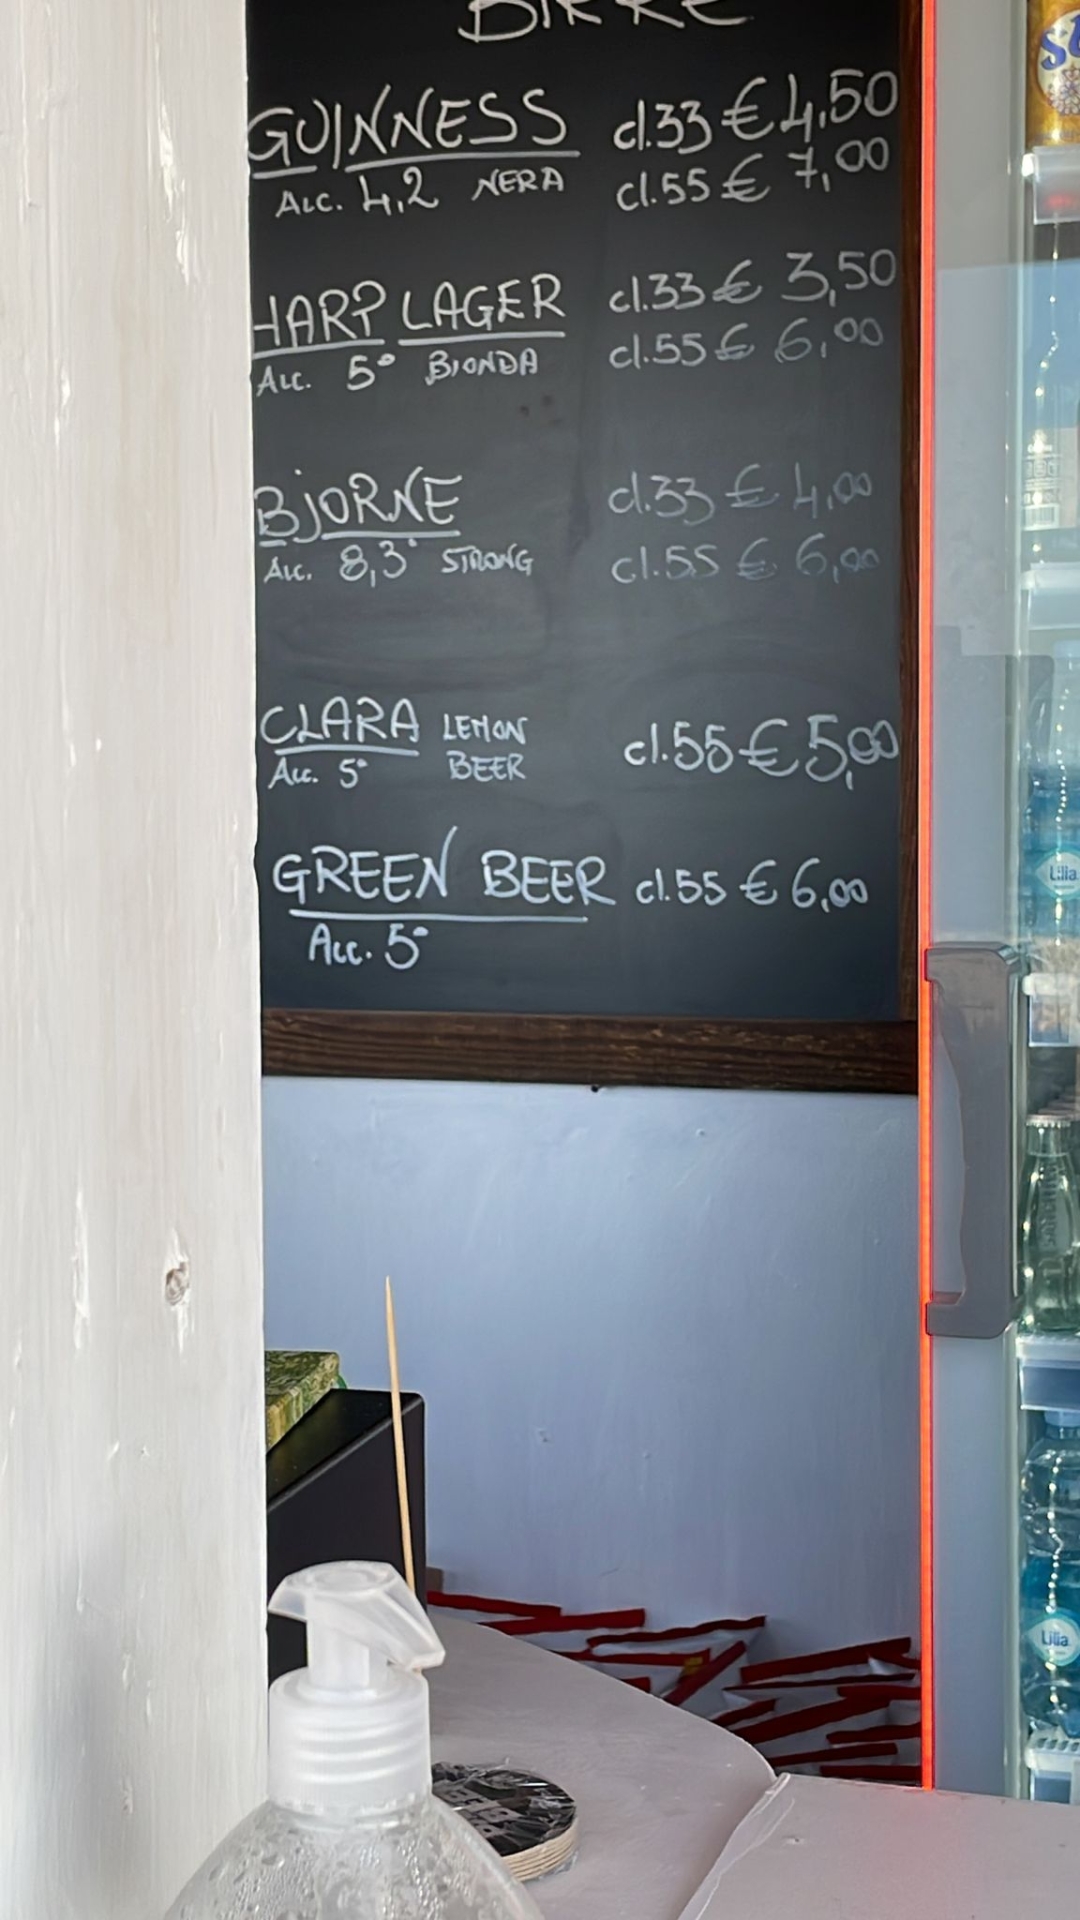 BIRRE
GUINNESS cl.33 € 4,50
Alc. 4,2 NERA cl.55 € 7,00
HARP LAGER cl.33 € 3,50
Alc. 5° BIONDA cl.55 € 6,00
BJORNE cl.33 € 4,00
Alc. 8,3° STRONG cl.55 € 6,00
CLARA LEMON cl.55 € 5,00
Alc. 5° BEER
GREEN BEER cl.55 € 6,00
Alc. 5°
Lilia
Lilia